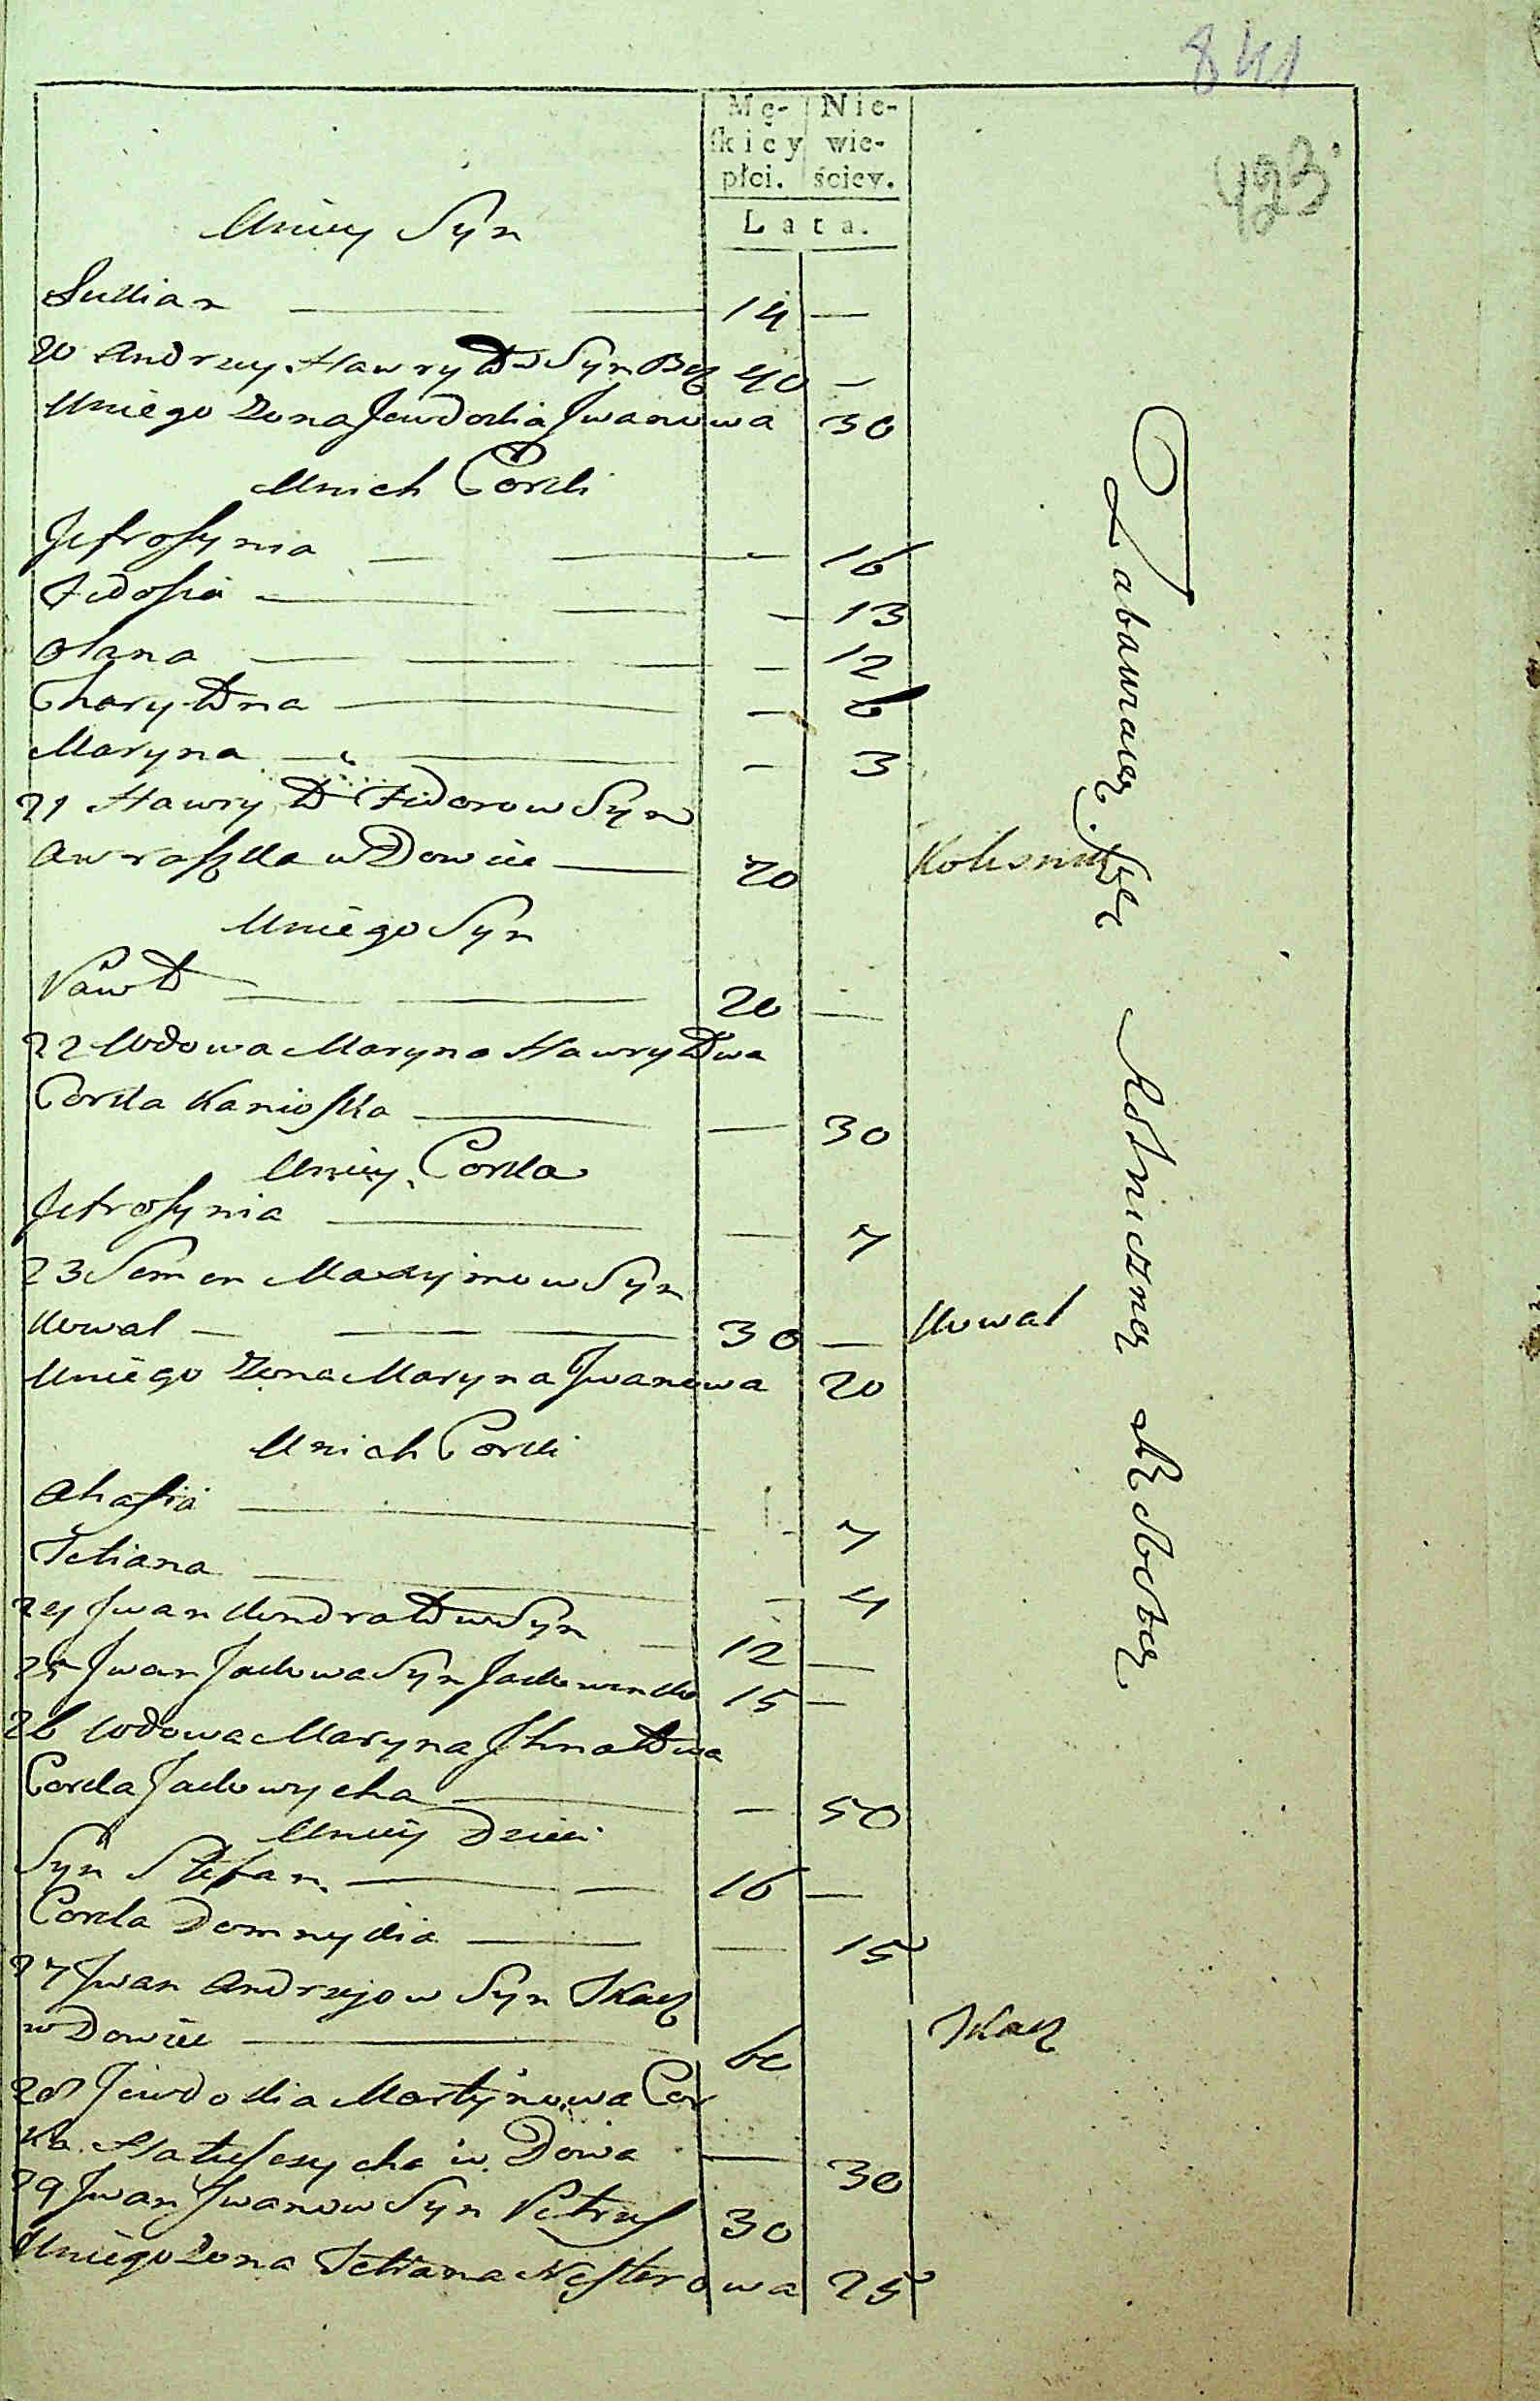 841
423
Mę- Nie-
skiey wie-
płci. ściey.
Lata.
Uniey Syn
Łukian 14 —
20 Andrzey Hawryłow Syn 40 —
Uniego Zona Jewdokia Jwanowa 30
Unich Corki
Jefrosynia — 16
Fedosia — 13
Olana — 12
Charytyna — 6
Maryna — 3
21 Hawryło Fedorow Syn
wdowiec 70 Kolisnik
Uniego Syn
Pawło 20 —
22 Wdowa Maryna Hawryłowa
Corka Kanioska — 30
Uniey Corka
Jefrosynia — 7
23 Semen Maxymow Syn
Kowal 30 — Kowal
Uniego Zona Maryna Jwanowa 20
Unich Corki
Ahafia — 7
Tetiana — 4
24 Jwan Kondratow Syn 12 —
25 Jwan Jackowa Syn Jackowenko 15 —
26 Wdowa Maryna Jhnatowa
Corka Jackowycha — 50
Uniey Dzieci
Syn Stefan 16 —
Corka Domnykia — 15
27 Jwan Andrzejow Syn Tkacz
wdowiec 60 Tkacz
28 Jewdokia Martynowa Cor
ka wdowa — 30
29 Jwan Jwanow Syn Petrus 30
Uniego Zona Tetiana Nesterowa 25
Zabawiaią Się Rolniczną Robotą